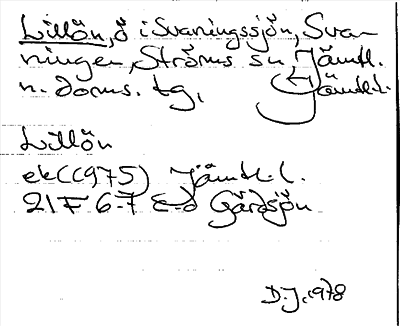 Lillön, ö i Svaningssjön, Sva-
ningen, Ströms sn, Jämtl.
n. doms. tg, Jämtl.l.
Lillön
ek (C975) Jämtl.l.
21F 6-7 c-d Gärdsjön
D.J. 1978